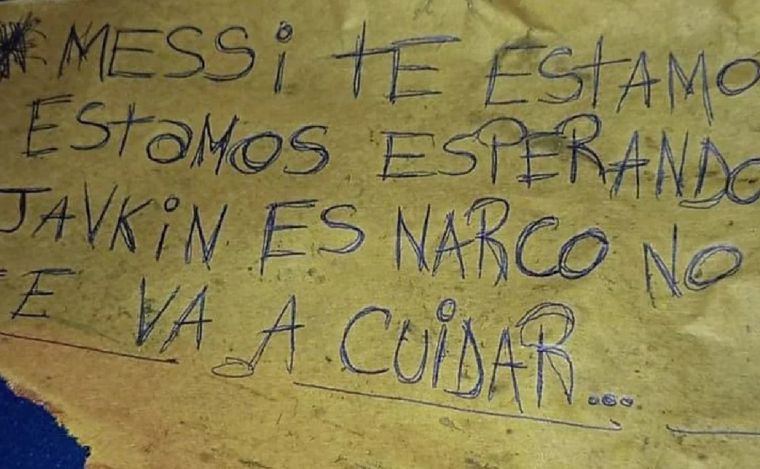 MESSi tE EStAMO
EStaMOS ESPERANDO
JAVKiN ES NARCO NO
E VA A CUiDAR...